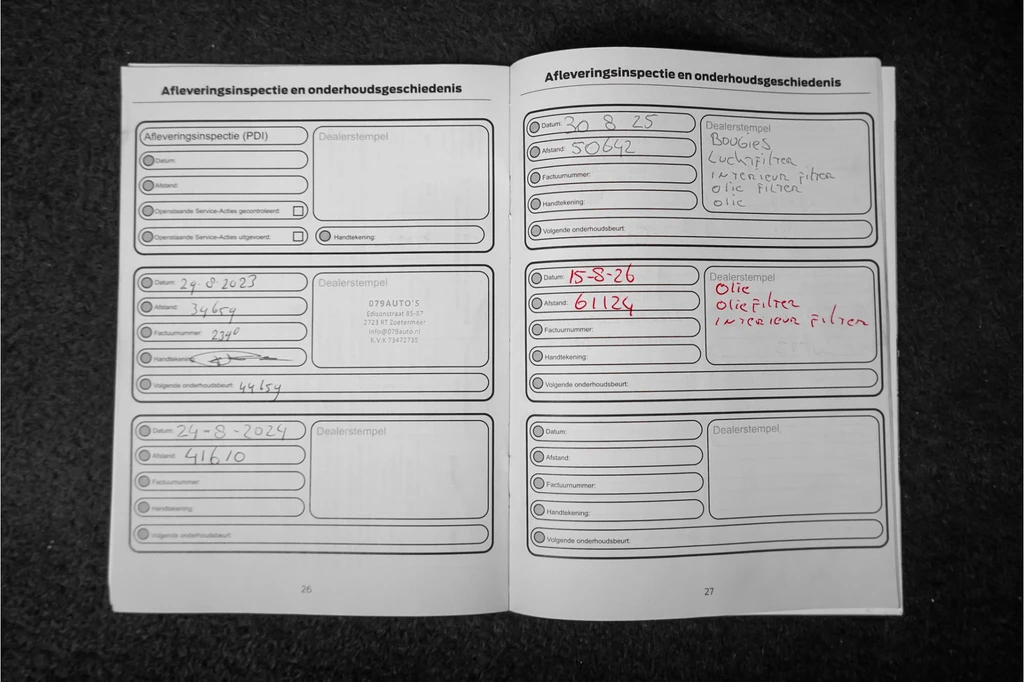 Afleveringsinspectie en onderhoudsgeschiedenis
Afleveringsinspectie (PDI)
Dealerstempel
Datum:
Afstand:
Openstaande Service-Acties gecontroleerd:
Openstaande Service-Acties uitgevoerd:
Handtekening:
Datum: 29-8-2023
Dealerstempel
079AUTO'S
Edisonstraat 85-87
2723 RT Zoetermeer
info@079auto.nl
K.V.K 73472735
Afstand: 34659
Factuurnummer: 2340
Handtekening:
Volgende onderhoudsbeurt: 44659
Datum: 24-8-2024
Dealerstempel
Afstand: 41610
Factuurnummer:
Handtekening:
Volgende onderhoudsbeurt:
26
Afleveringsinspectie en onderhoudsgeschiedenis
Datum: 30 8 25
Dealerstempel
BOUGIES
LUCHTFILTER
INTERIEUR FILTER
OLIE FILTER
OLIE
Afstand: 50642
Factuurnummer:
Handtekening:
Volgende onderhoudsbeurt:
Datum: 15-8-26
Dealerstempel
OLIE
OLIEFILTER
INTERIEUR FILTER
Afstand: 61124
Factuurnummer:
Handtekening:
Volgende onderhoudsbeurt:
Datum:
Dealerstempel
Afstand:
Factuurnummer:
Handtekening:
Volgende onderhoudsbeurt:
27